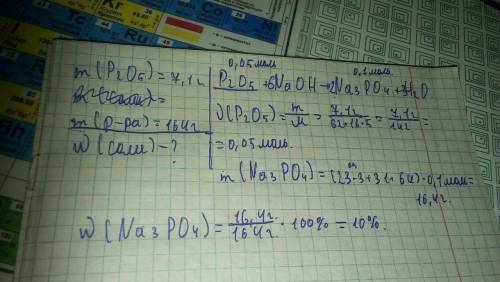 Cr
Co
Ni
Cu
Tc
Ru
Kr
m(P2O5)=7,1г
m(р-ра)=164г
W(соли)-?
0,05моль 0,1моль
P2O5+6NaOH→2Na3PO4+3H2O
ν(P2O5)=m/M=7,1г/62+16·5=7,1г/142=
=0,05моль.
m(Na3PO4)=(23·3+31+64)·0,1моль=
16,4г.
W(Na3PO4)=16,4г/164г·100%=10%.